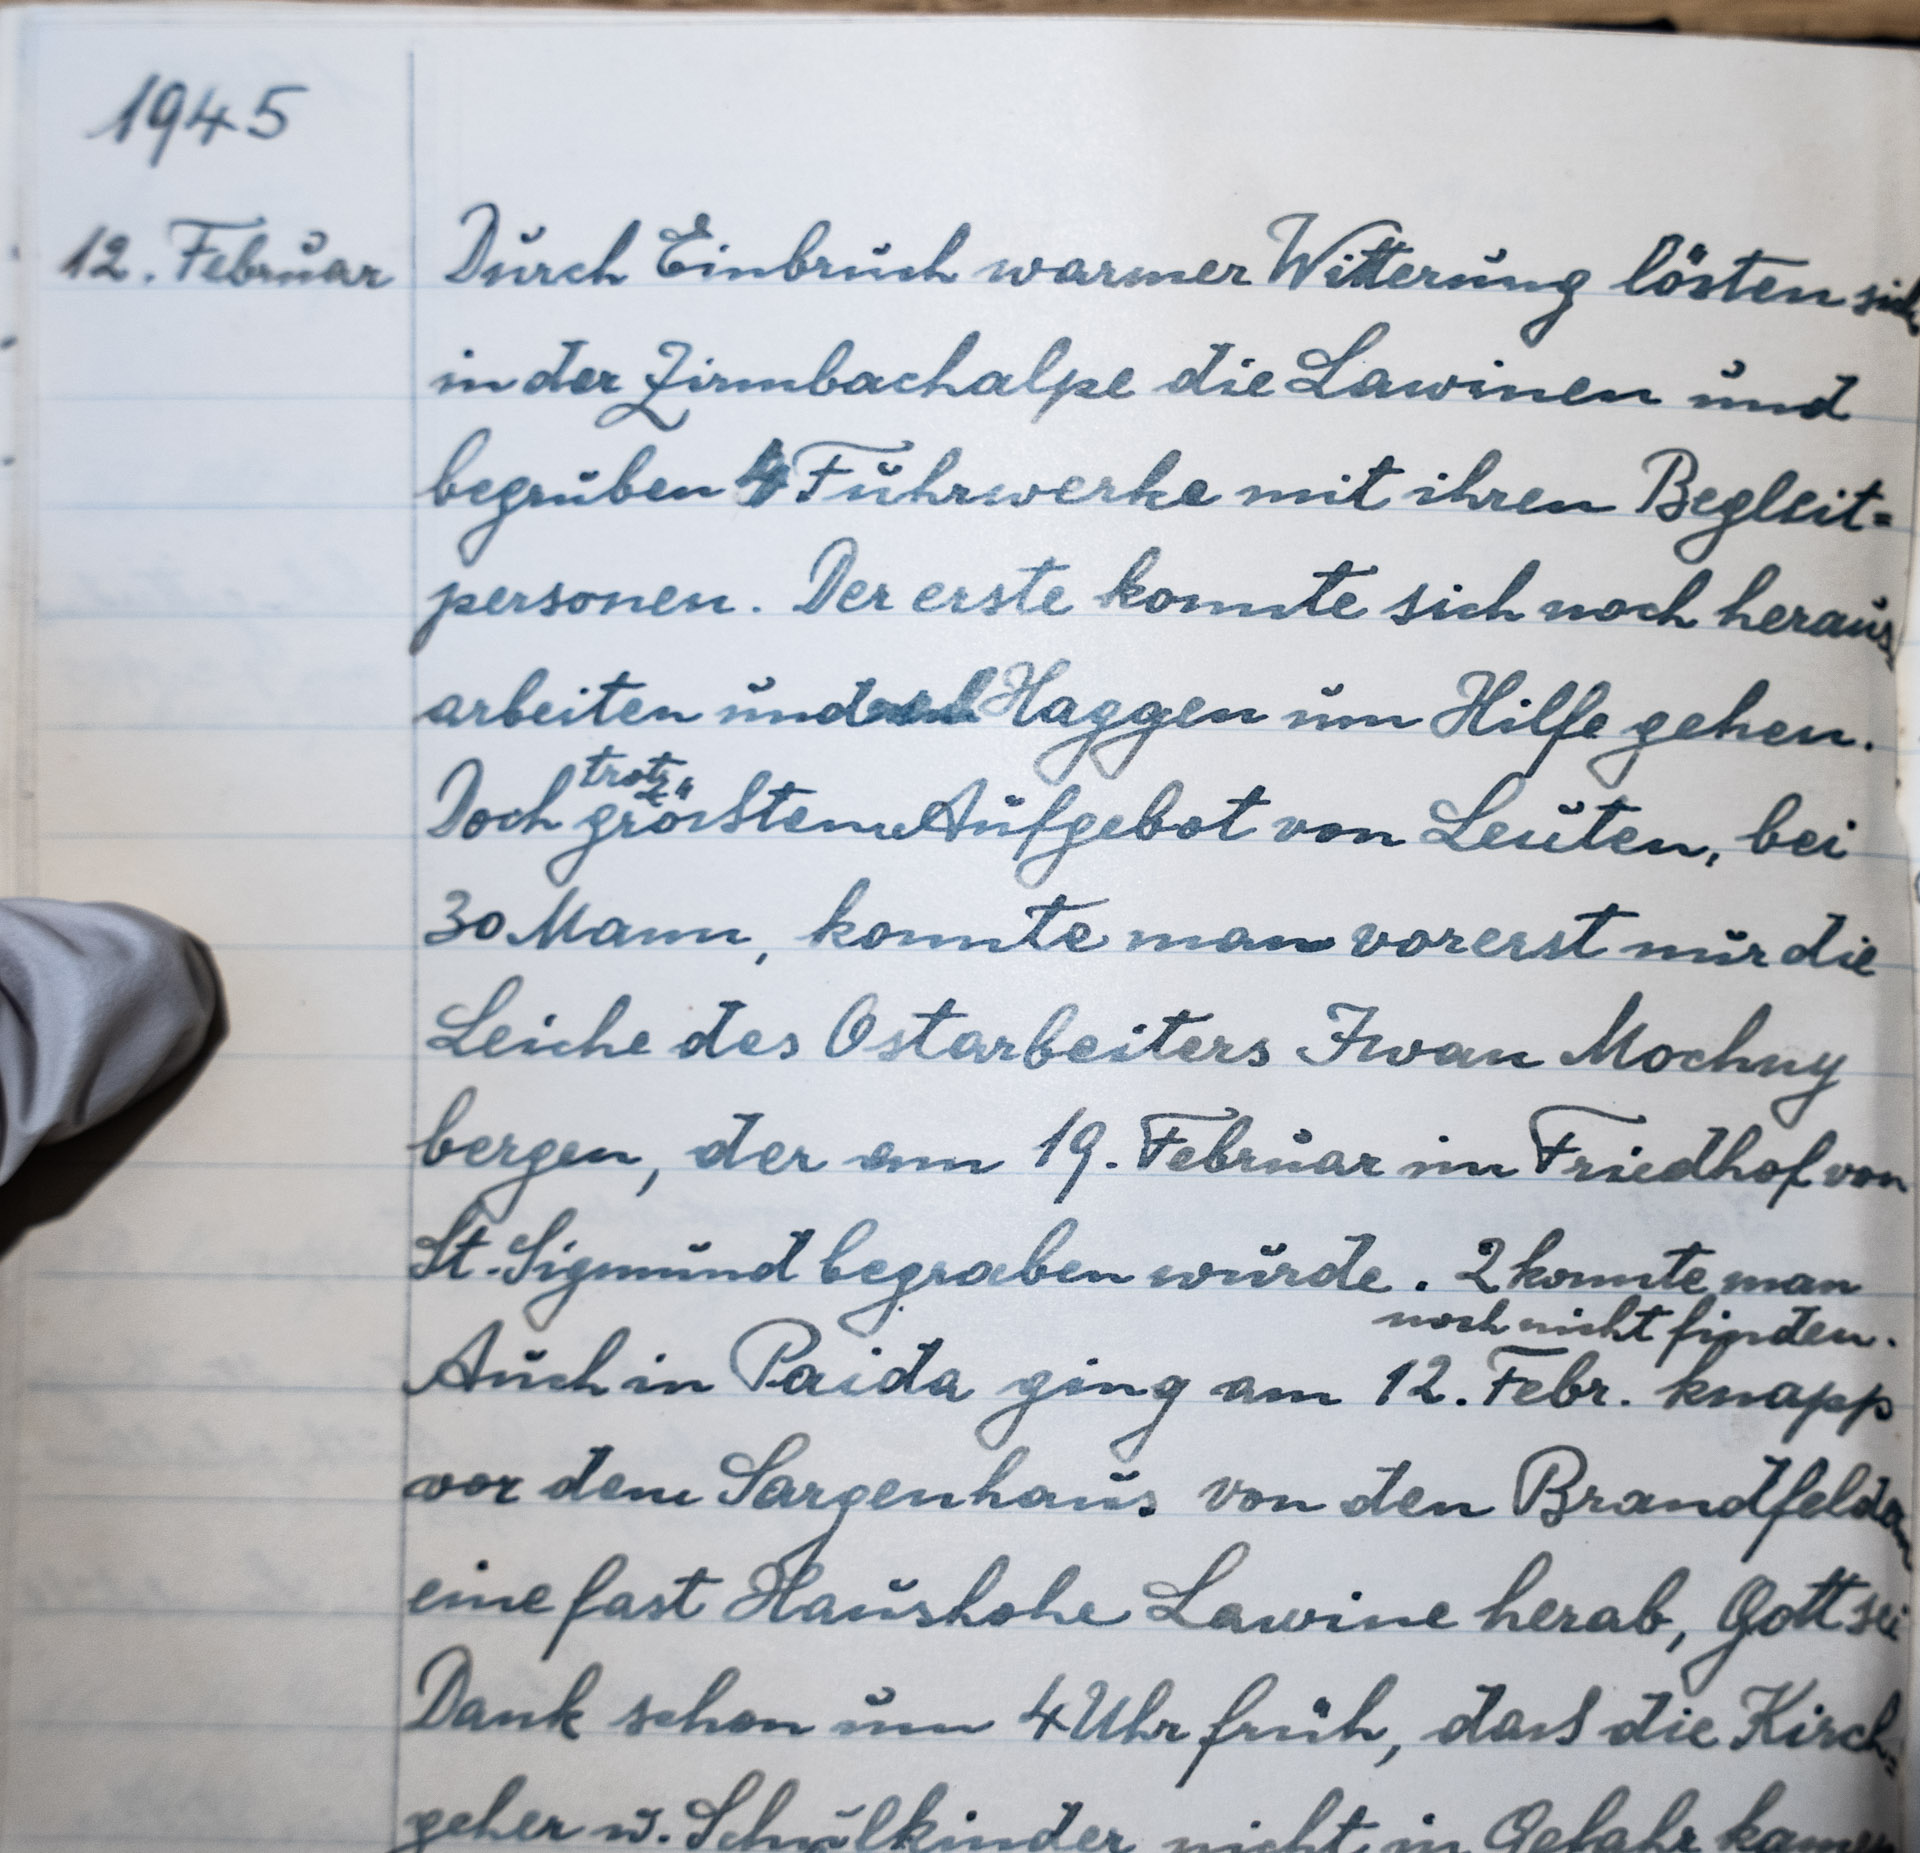 1945
12. Februar Durch Einbruch warmer Witterung lösten sich
in der Zirmbachalpe die Lawinen und
begruben 4 Fuhrwerke mit ihren Begleit=
personen. Der erste konnte sich noch heraus
arbeiten und Haggen um Hilfe gehen.
trotz
Doch grösstem Aufgebot von Leuten, bei
30 Mann, konnte man vorerst nur die
Leiche des Ostarbeiters Iwan Mochny
bergen, der am 19. Februar im Friedhof von
St. Sigmund begraben wurde. 2 konnte man
noch nicht finden.
Auch in Paida ging am 12. Febr. knapp
vor dem Sargenhaus von den Brandfeldern
eine fast Haushohe Lawine herab, Gott sei
Dank schon um 4 Uhr früh, dass die Kirch=
geher u. Schulkinder nicht in Gefahr kamen